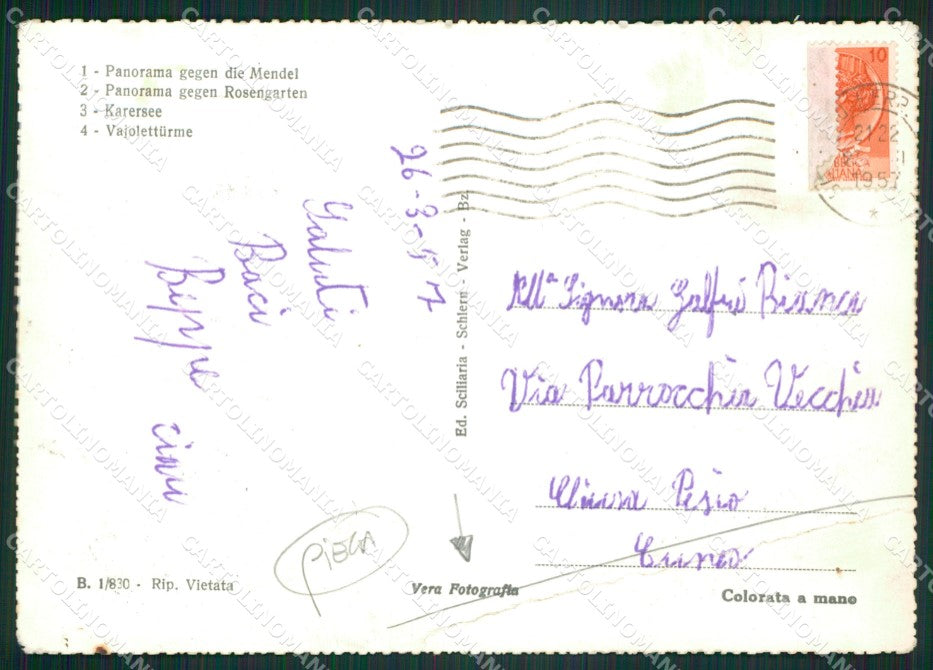 1 - Panorama gegen die Mendel
2 - Panorama gegen Rosengarten
3 - Karersee
4 - Vajolettürme
26-3-57
Saluti
Baci
Beppe
Ed. Sciliaria - Schlern - Verlag - Bz
10
ITALIANA
21-22
1957
All'a Signora Galfrè Bianca
Via Parrocchia Vecchia
Chiusa Pesio
Cuneo
PIEGA
B. 1/830 - Rip. Vietata
Vera Fotografia
Colorata a mano
CARTOLINOMANIA